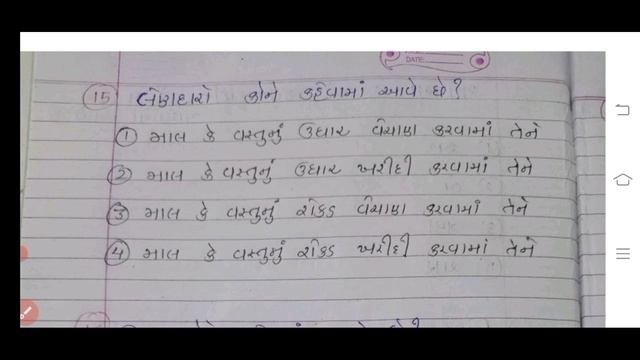 DATE:
15 લેણદારો કોને કહેવામાં આવે છે?
1 માલ કે વસ્તુનું ઉધાર વેચાણ કરવામાં તેને
2 માલ કે વસ્તુનું ઉધાર ખરીદી કરવામાં તેને
3 માલ કે વસ્તુનું રોકડ વેચાણ કરવામાં તેને
4 માલ કે વસ્તુનું રોકડ ખરીદી કરવામાં તેને